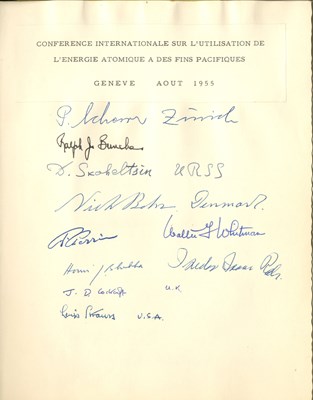 CONFERENCE INTERNATIONALE SUR L'UTILISATION DE
L'ENERGIE ATOMIQUE A DES FINS PACIFIQUES
GENEVE AOUT 1955
P. Scherrer Zürich
Ralph J. Bunche
D. Skobeltsin URSS
Niels Bohr Denmark.
F Perrin Walter G Whitman
Homi J Bhabha Isidor Isaac Rabi
J. D. Cockcroft U.K
Lewis Strauss U.S.A.